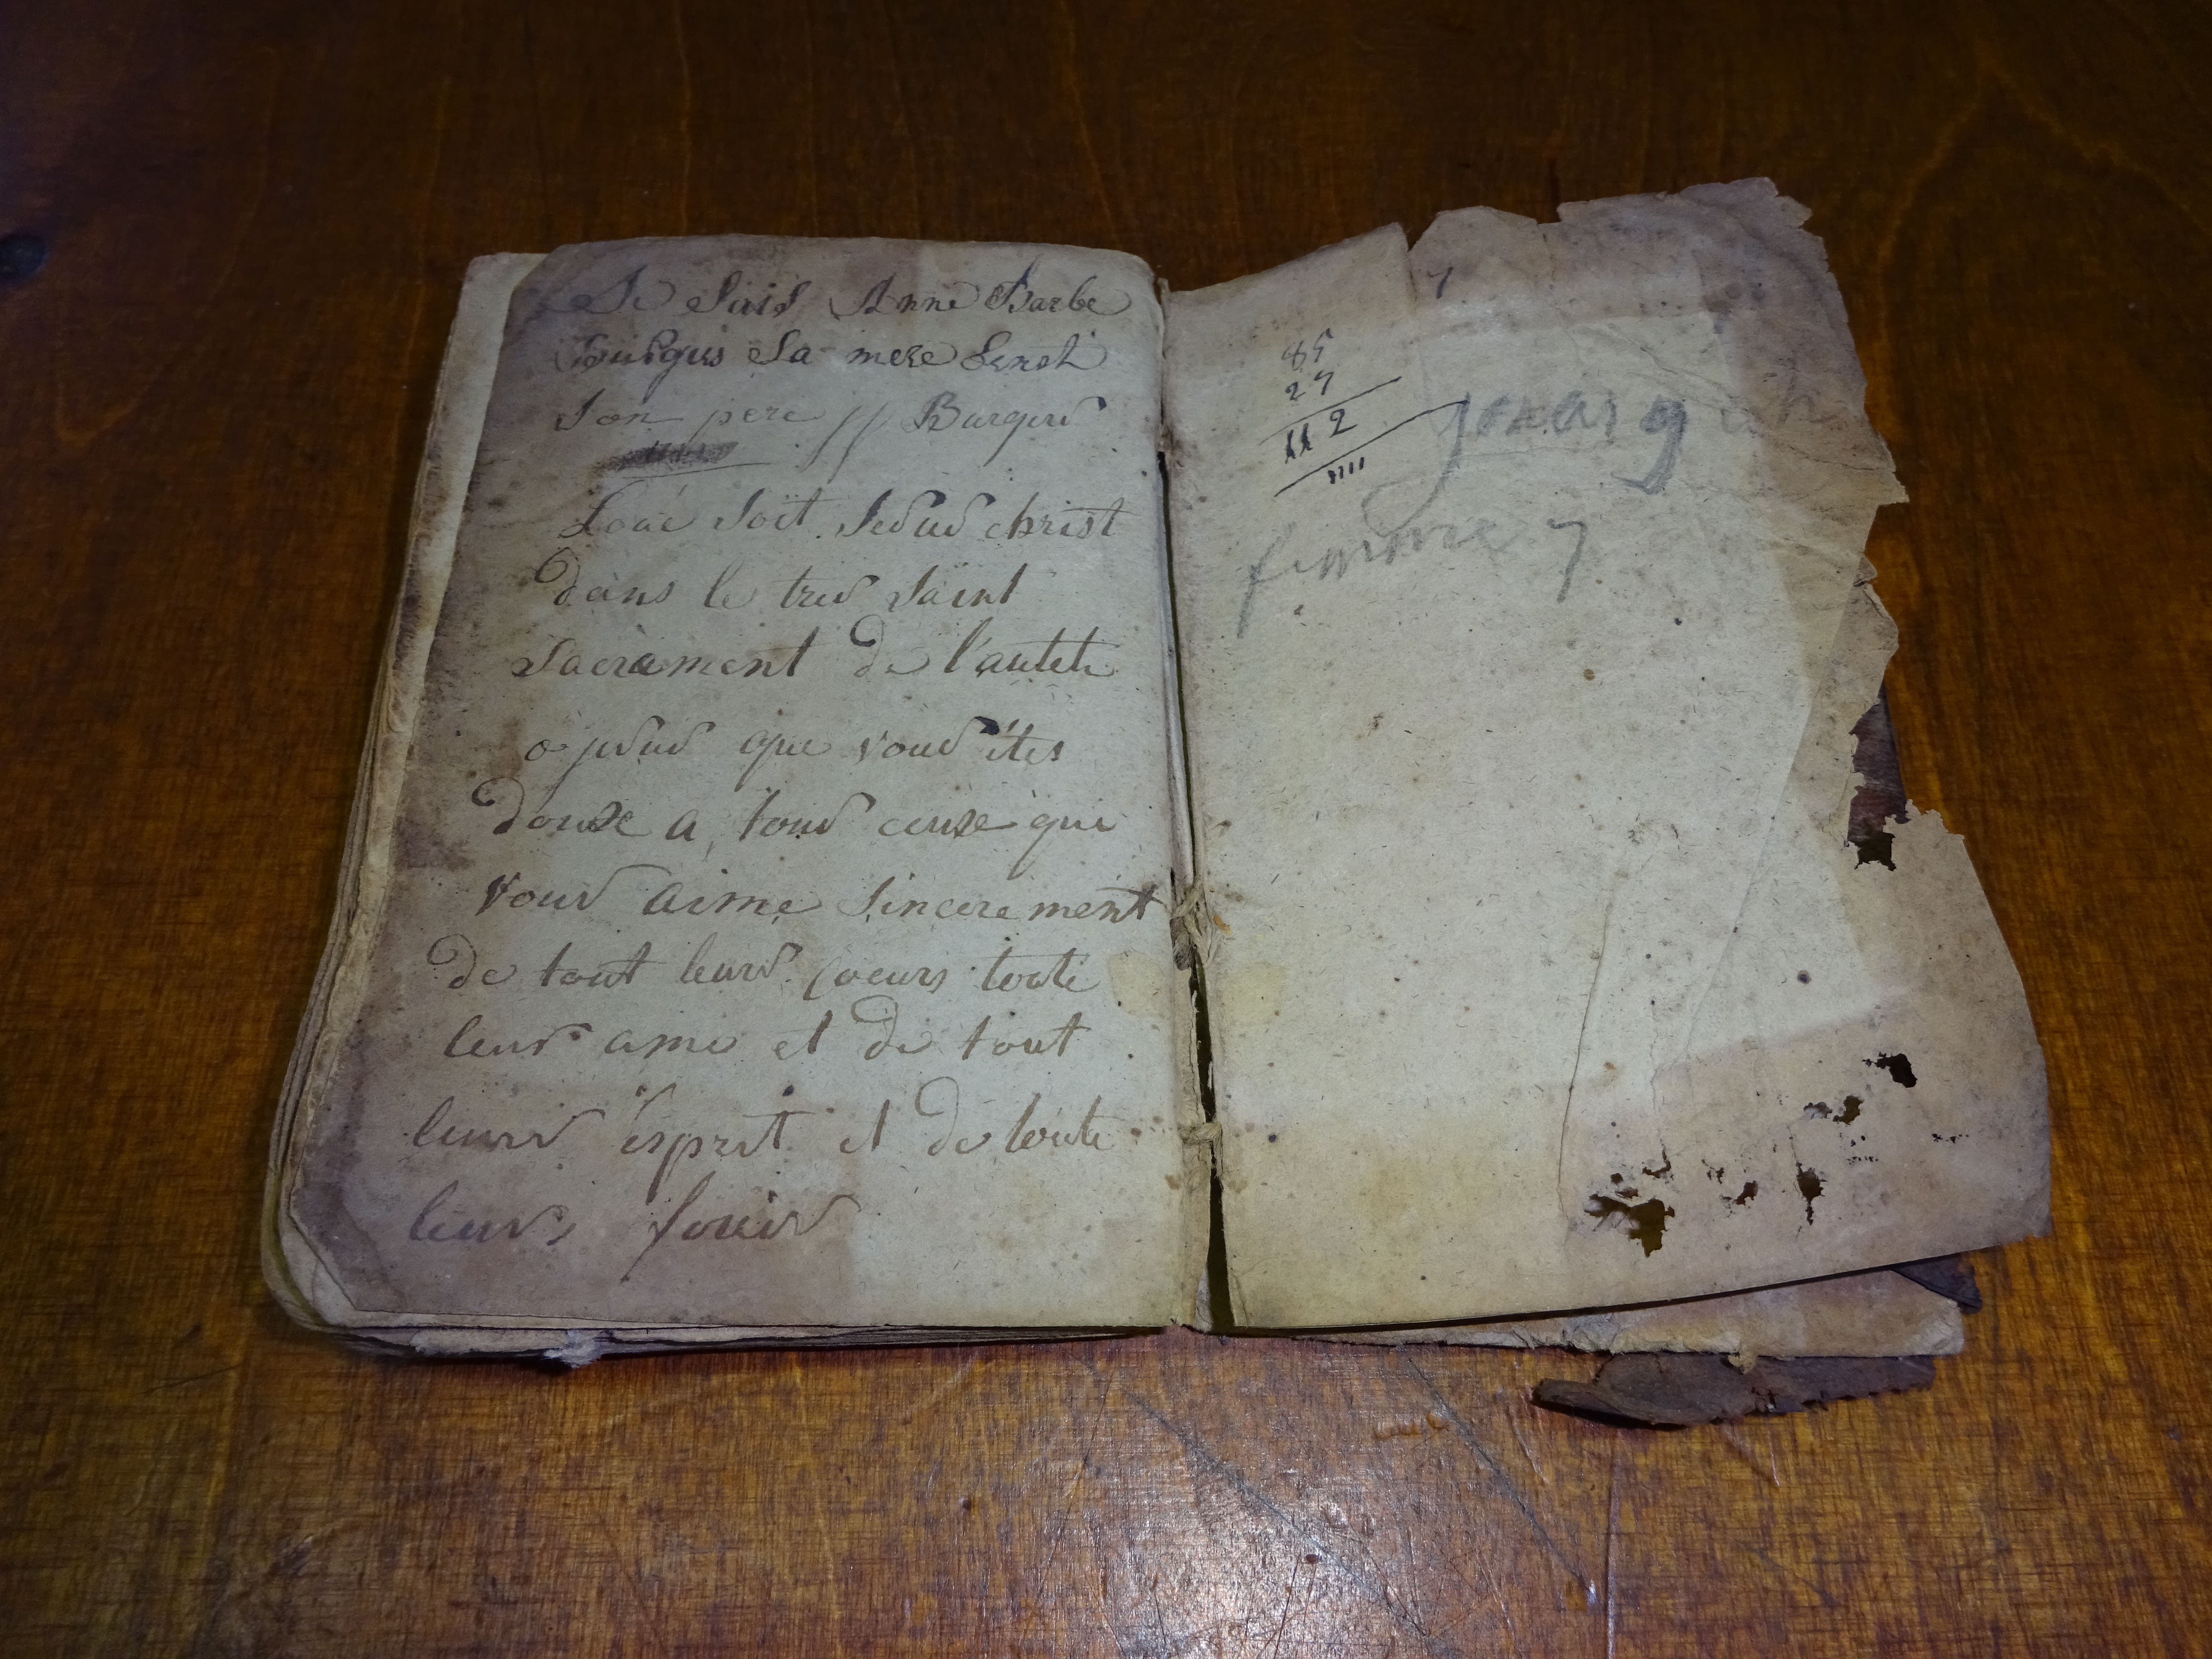 Je Suis Anne Barbe
Sa mere
Son pere // Burgers
Loué soit Jesus christ
dans le tres saint
Sacrement de l'autele
o jesus que vous êtes
douxe a tous ceuxe qui
vous aime sincerement
de tout leurs coeurs toute
leurs ame et de tout
leurs esprit et de toute
leurs
7
85
27
112
femme 7